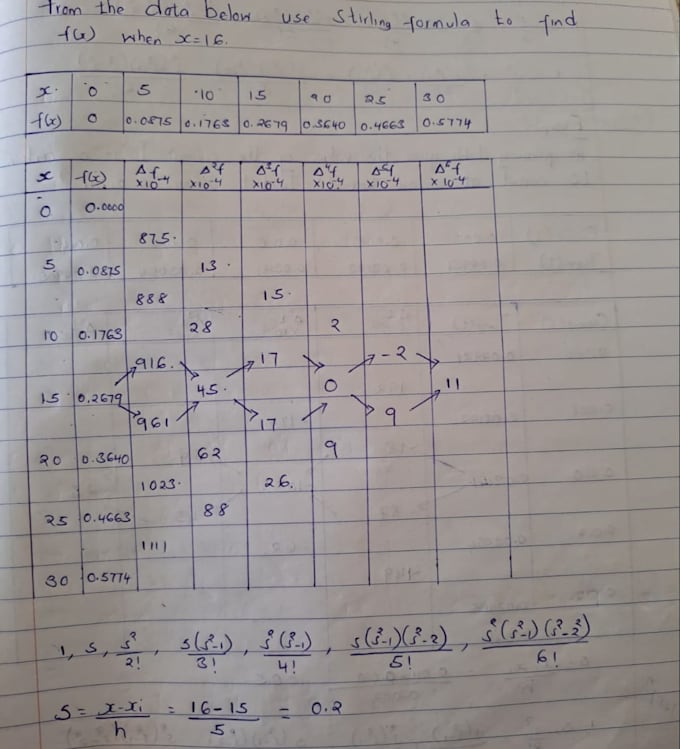 From the data below use Stirling formula to find
f(x) when x=16.
x. 0 5 10 15 20 25 30
f(x) 0 0.0875 0.1763 0.2679 0.3640 0.4663 0.5774
x f(x) Δf ×10⁻⁴ Δ²f ×10⁻⁴ Δ³f ×10⁻⁴ Δ⁴f ×10⁻⁴ Δ⁵f ×10⁻⁴ Δ⁶f ×10⁻⁴
0 0.0000
875.
5 0.0875 13.
888 15.
10 0.1763 28 2
916. 17 -2
15 0.2679 45. 0 11
961 17 9
20 0.3640 62 9
1023. 26.
25 0.4663 88
1111
30 0.5774
1, s, s²/2!, s(s²-1)/3!, s²(s²-1)/4!, s(s²-1)(s²-2)/5!, s²(s²-1)(s²-2²)/6!
S = x-xi/h = 16-15/5. = 0.2